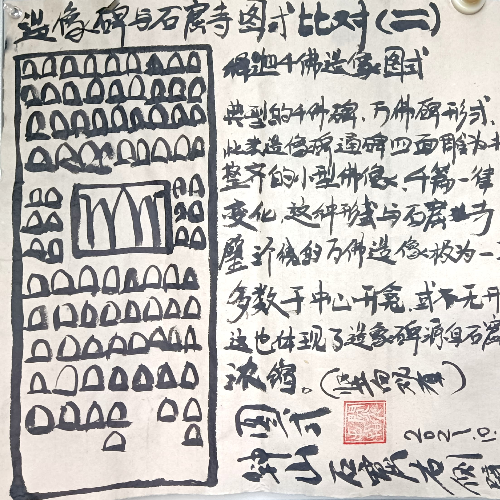 造像碑与石窟寺图式比对(二)
千佛造像图式
典型的千佛碑、万佛碑形式,
此类造像碑通碑四面雕为
整齐的小型佛像,千篇一律
变化,这种形式与石窟寺
壁 的万佛造像极为一
多数于中心开龛,或不无开
这也体现了造像碑源自石窟
浓缩。
图式
2021.10.
钟山石